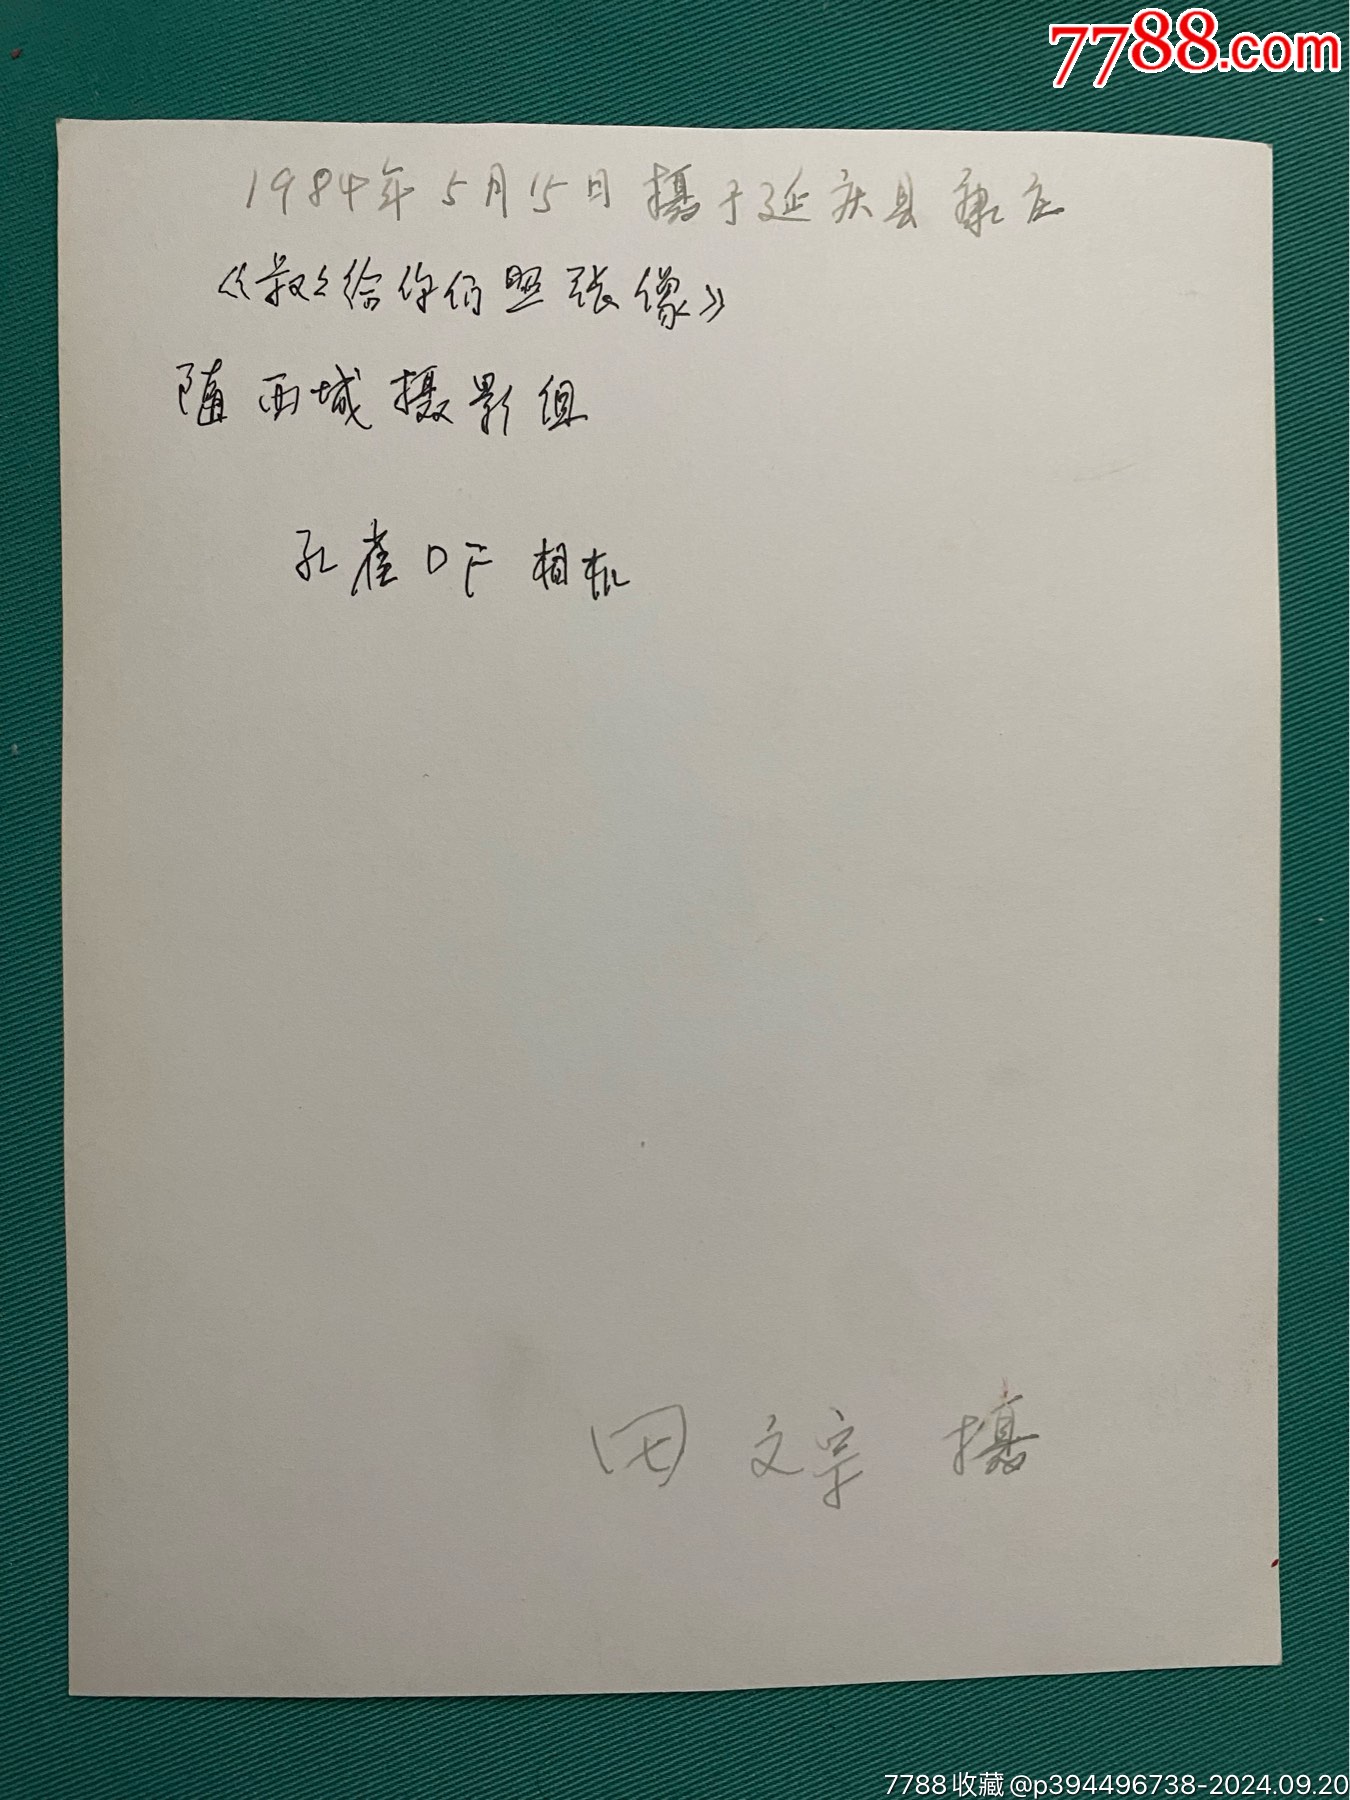 7788.com
1984年5月15日摄于延庆县康庄
《叔々给你们照张像》
随西城摄影组
孔雀DF相机
田文宇 摄
7788收藏@p394496738-2024.09.20